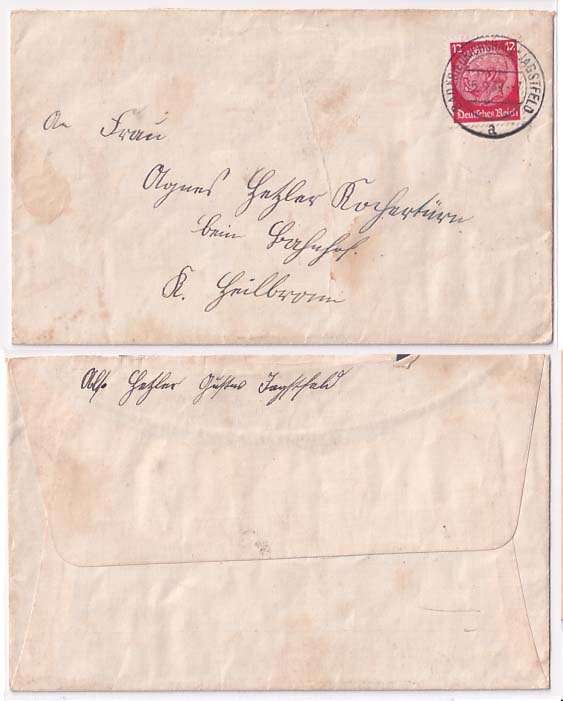 12 12
Deutsches Reich
JAGSTFELD
a
An Frau
Agnes Hetzler Kochertürn
beim Bahnhof.
K. Heilbronn
Abs. Hetzler Gustav Jagstfeld